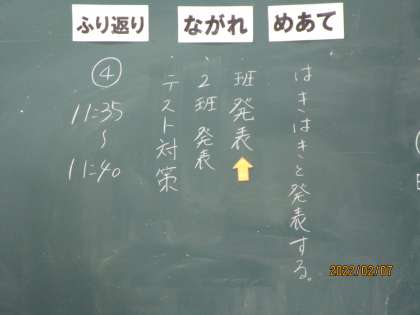 めあて
はきはきと発表する。
ながれ
・班発表
・2班発表
・テスト対策
ふり返り
④
11:35
～
11:40
2022/02/07